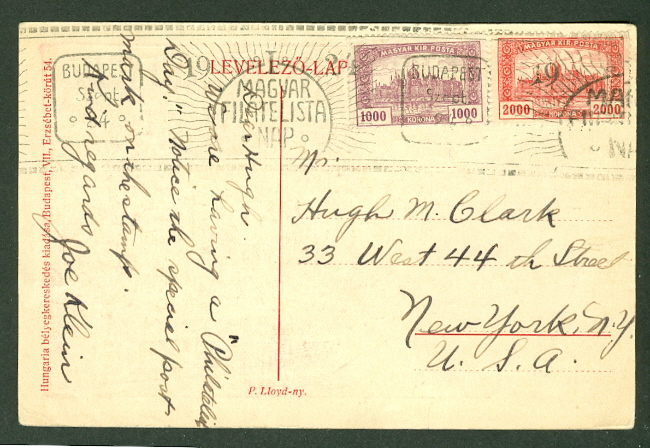 LEVELEZŐ-LAP
BUDAPEST
19
MAGYAR
FILATELISTA
NAP
MAGYAR KIR. POSTA
1000 KORONA 1000
BUDAPEST
MAGYAR KIR. POSTA
19
2000 KORONA 2000
Dear Hugh.
We are having a "Philatelic
Day." Notice the special post-
mark on the stamps.
Kind regards
Joe Klein
Mr.
Hugh M. Clark
33 West 44 th Street
New York, N.Y.
U. S. A.
Hungaria bélyegkereskedés kiadása, Budapest, VII., Erzsébet-körút 54.
P. Lloyd-ny.